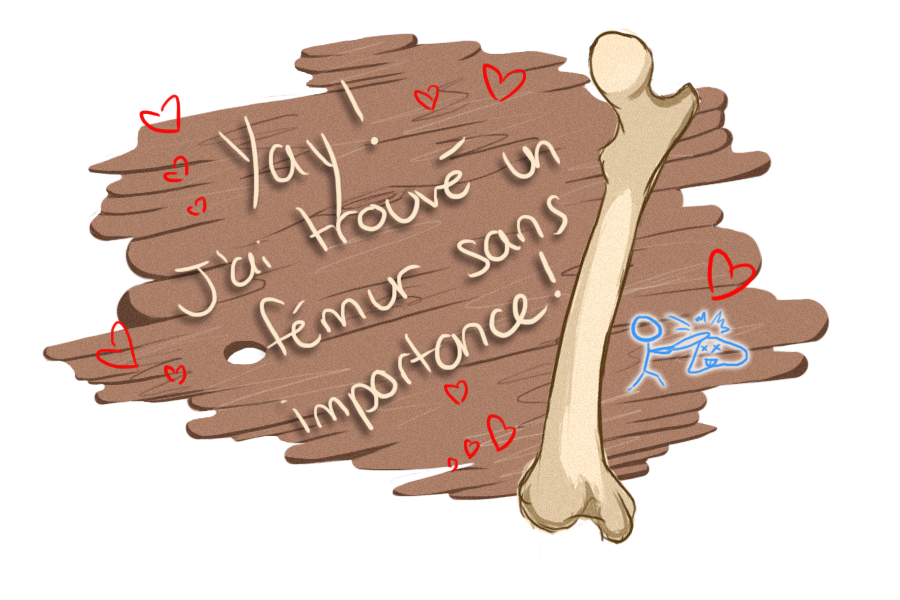 Yay !
J'ai trouvé un
fémur sans
importance !